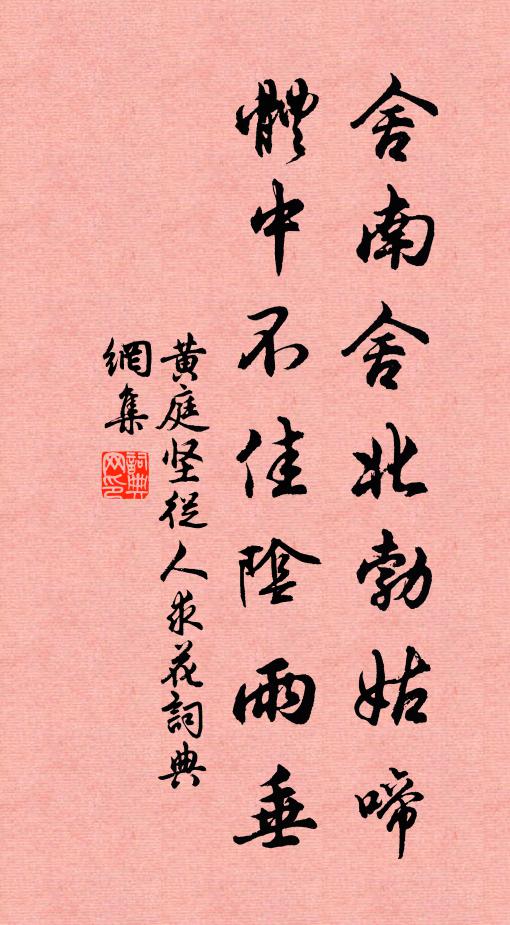 舍南舍北勃姑啼
體中不佳陰雨垂
黄庭坚從人求花詞典
網集
詞典網印